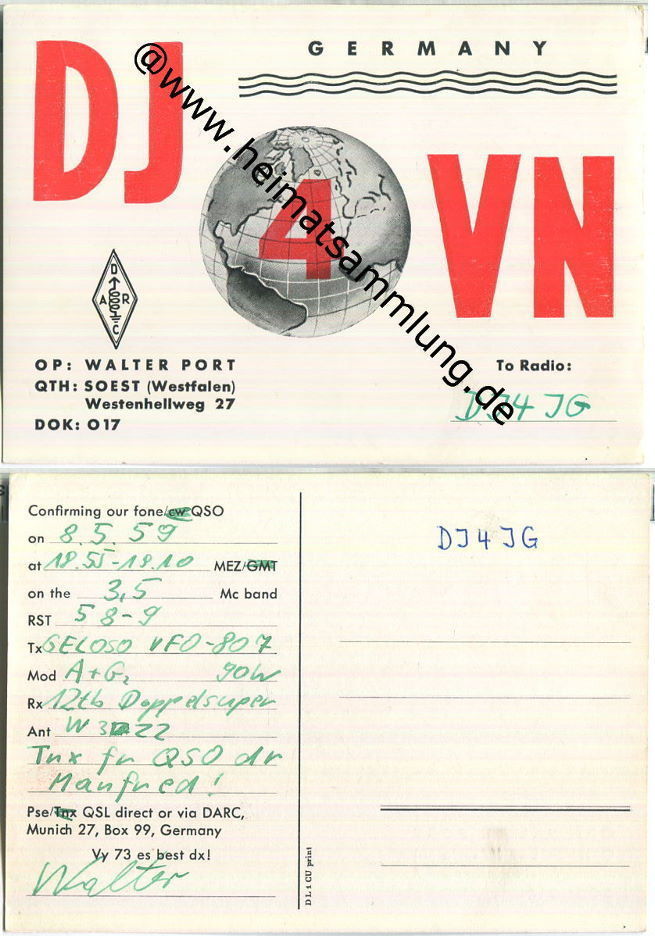 GERMANY
DJ 4 VN
@www.heimatsammlung.de
DARC
OP: WALTER PORT
QTH: SOEST (Westfalen)
Westenhellweg 27
DOK: O17
To Radio:
DJ4JG
Confirming our fone/cw QSO
on 8.5.59
at 18.55-19.10 MEZ/GMT
on the 3,5 Mc band
RST 58-9
Tx GELOSO VFO-807
Mod A+G2 90W
Rx 12tb Doppelsuper
Ant W3 22
Tnx fr QSO dr
Manfred!
Pse/Tnx QSL direct or via DARC,
Munich 27, Box 99, Germany
Vy 73 es best dx!
Walter
DJ4JG
DL1CU print